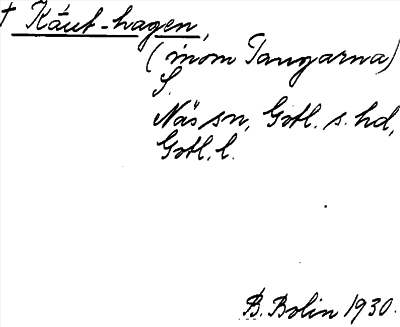 † Käut-hagen,
(inom Tangarna)
S.
Näs sn, Gotl. s. hd,
Gotl. l.
B. Bolin 1930.